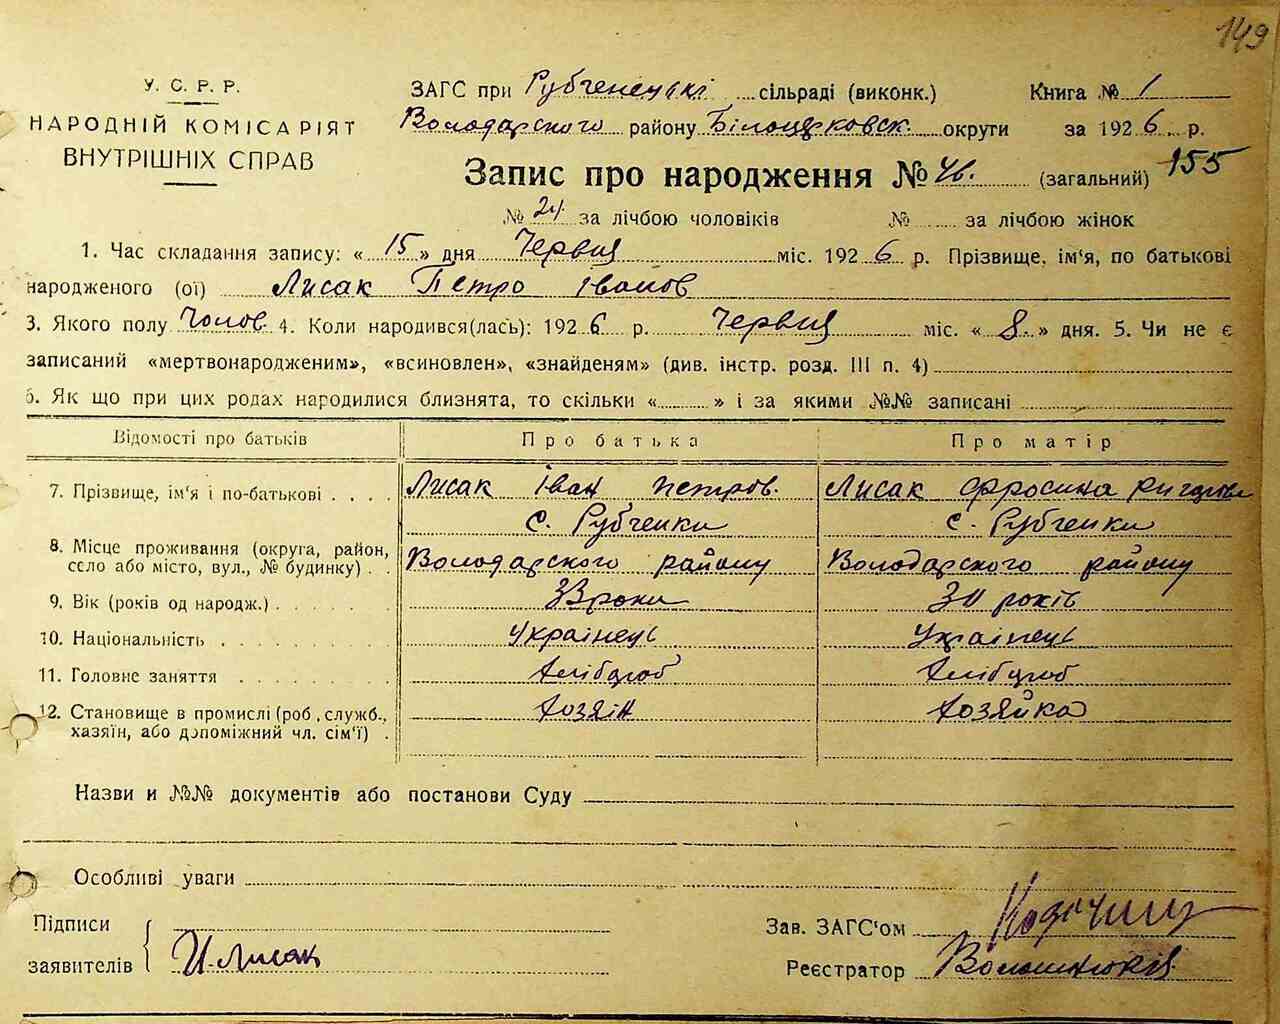 149
У. С. Р. Р.
НАРОДНІЙ КОМІСАРІЯТ
ВНУТРІШНІХ СПРАВ
ЗАГС при Рубченецькі сільраді (виконк.) Книга № 1
Володарского району Білоцерковск. округи за 1926 р.
Запис про народження № 46. (загальний) 155
№ 24 за лічбою чоловіків № за лічбою жінок
1. Час складання запису: « 15 » дня Червця міс. 1926 р. Прізвище, ім'я, по батькові
народженого (ої) Лисак Петро Іванов
3. Якого полу Чолов. 4. Коли народився(лась): 1926 р. Червця міс. « 8. » дня. 5. Чи не є
записаний «мертвонародженим», «всиновлен», «знайденям» (див. інстр. розд. III п. 4)
6. Як що при цих родах народилися близнята, то скільки « » і за якими №№ записані
Відомості про батьків Про батька Про матір
7. Прізвище, ім'я і по-батькові . . . . Лисак Іван Петров. Лисак Фросина
с. Рубченки с. Рубченки
8. Місце проживання (округа, район,
село або місто, вул., № будинку) . . Володарского району Володарского району
9. Вік (років од народж.) . . . . . . . 33 роки 30 років
10. Національність . . . . . . . . . Українець Українець
11. Головне заняття . . . . . . . . Хлібороб Хлібороб
12. Становище в промислі (роб., служб.,
хазяїн, або допоміжний чл. сім'ї) . Хозяїн Хозяйка
Назви и №№ документів або постанови Суду
Особливі уваги
Підписи
заявителів И. Лисак
Зав. ЗАГС'ом
Реєстратор